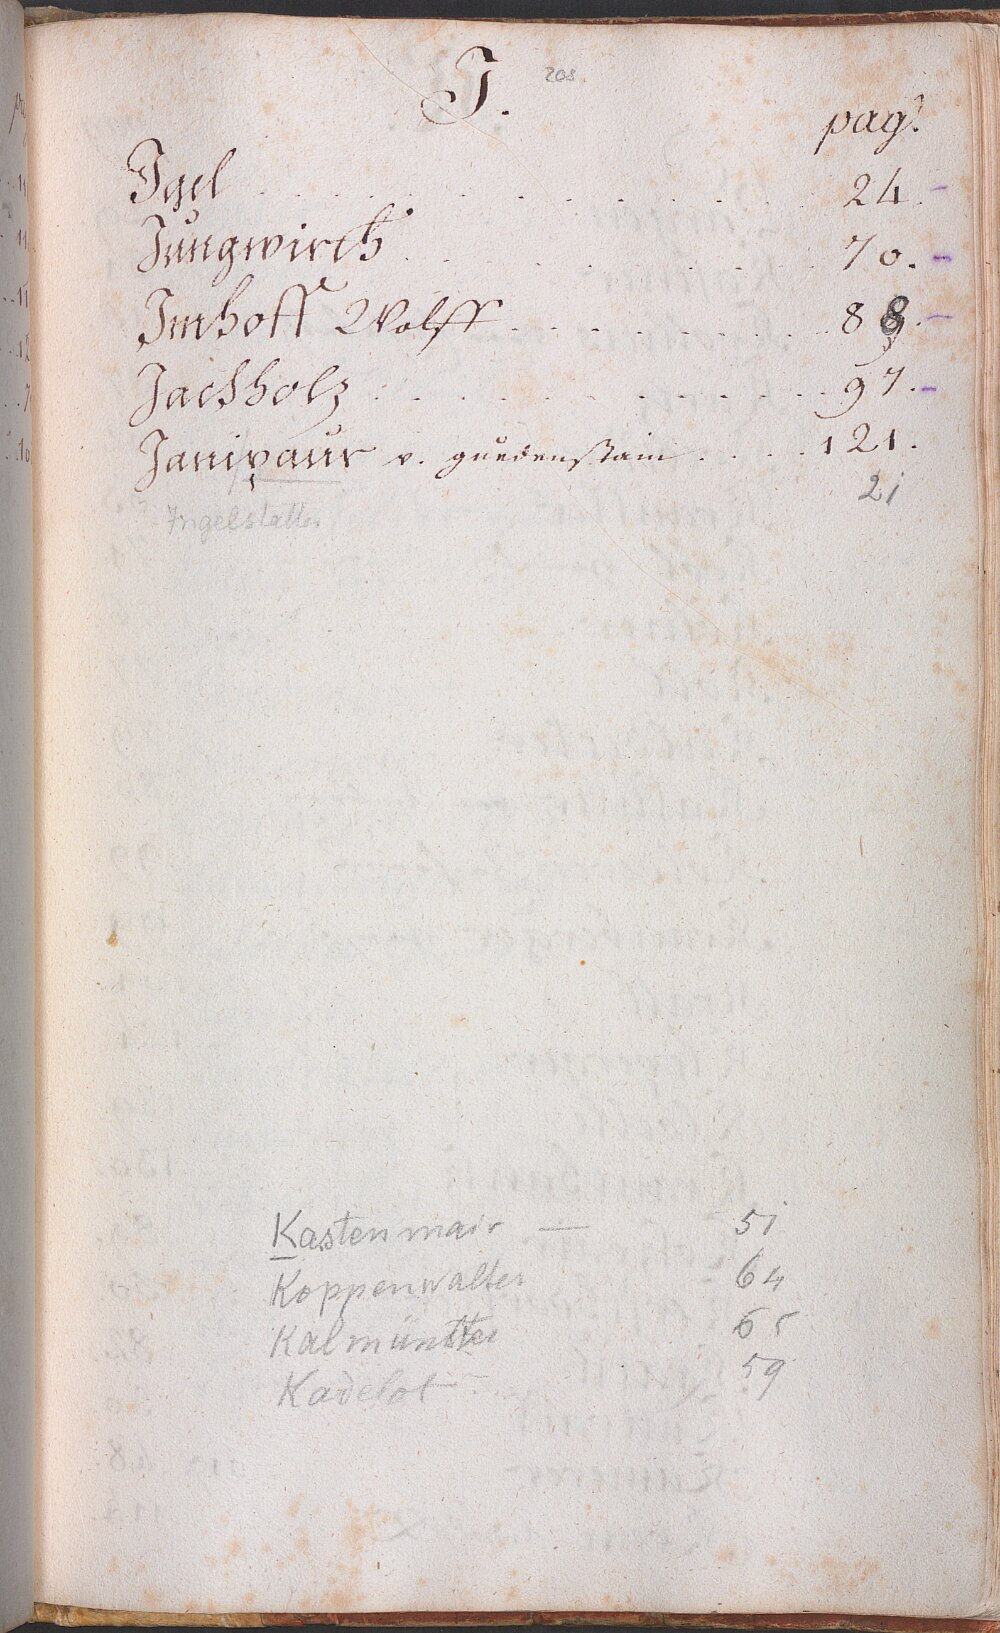 J. 208
pag:
Igel . . . . . . . . . . 24. -
Jungwirth . . . . . . . . 70. -
Imhoff Wolff . . . . . . . . 88. -
Jachholz . . . . . . . . 97. -
v. guedenstain . . . . 121.
Ingelstatter 21
Kastenmair — 51
Koppenwalter 64
Kalmüntzer 65
Kadelot — 59